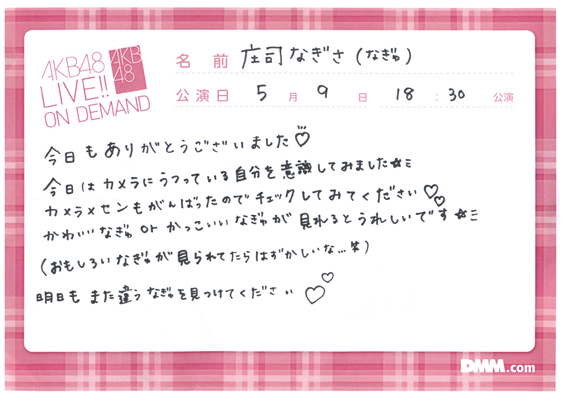 AKB48
LIVE!!
ON DEMAND
AKB
48
名前 庄司なぎさ(なぎゅ)
公演日 5月 9日 18:30 公演
今日もありがとうございました♡
今日はカメラにうつっている自分を意識してみました☆ミ
カメラメセンもがんばったのでチェックしてみてください♡♡
かわいいなぎゅ or かっこいいなぎゅが見れるとうれしいです☆ミ
(おもしろいなぎゅが見られてたらはずかしいな…笑)
明日もまた違うなぎゅを見つけてください♡♡
DMM.com